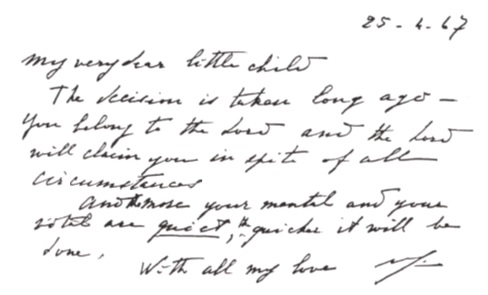 25-4-67
My very dear little child
The decision is taken long ago –
You belong to the Lord and the Lord
will claim you in spite of all
circumstances
And the more your mental and your
vital are quiet, the quicker it will be
done.
With all my love